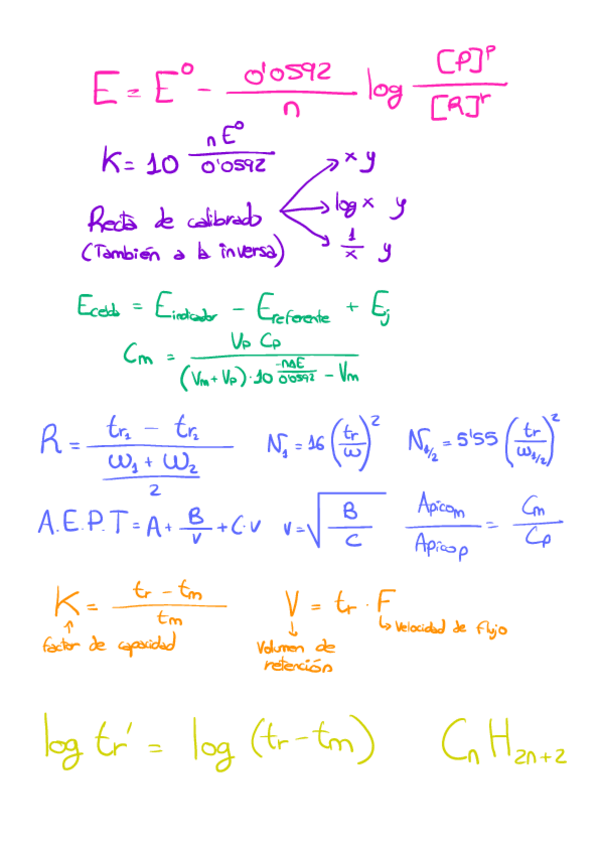 E = E⁰ - 0'0592/n log [P]ᵖ/[R]ʳ
K = 10 nE⁰/0'0592
Recta de calibrado
(También a la inversa)
x y
log x y
1/x y
Ecelda = Eindicador - Ereferente + Ej
Cm = Vp Cp / (Vm + Vp) · 10 -nΔE/0'0592 - Vm
R = tr₁ - tr₂ / ω₁ + ω₂ / 2
N₁ = 16 (tr/ω)²
N₁/₂ = 5'55 (tr/ω₁/₂)²
A.E.P.T = A + B/v + C·v
v = √B/C
Apicom/Apicop = Cm/Cp
K = tr - tm / tm
factor de capacidad
V = tr · F
Velocidad de flujo
Volumen de
retención
log tr' = log (tr - tm)
CnH2n+2